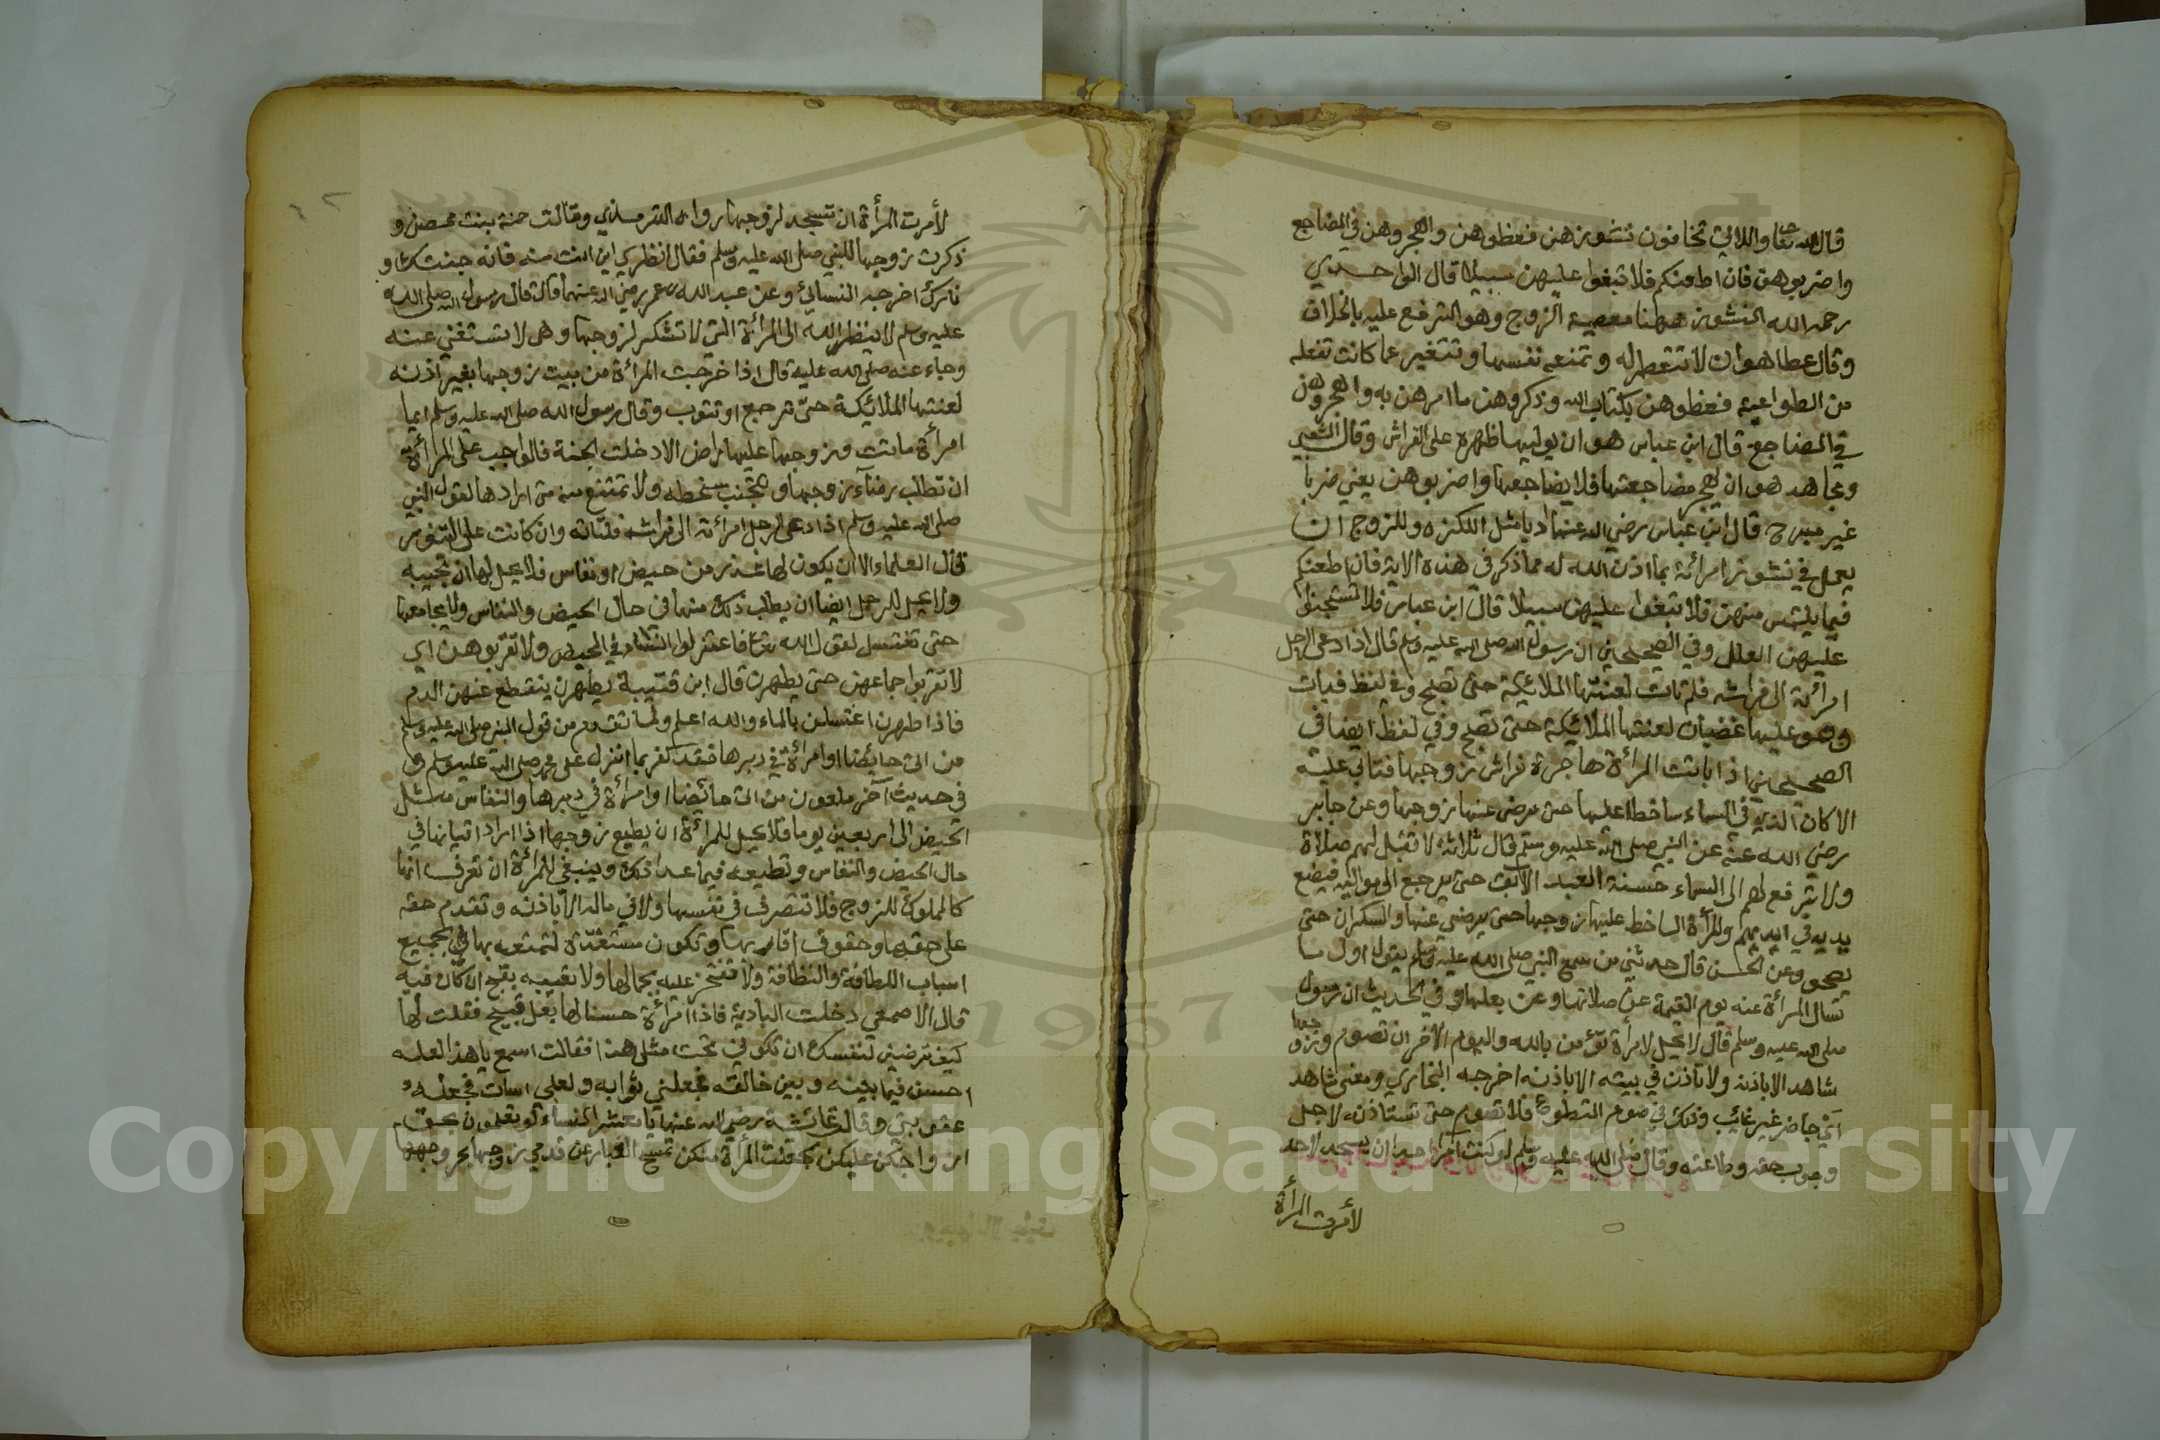 قال الله تعا واللاتي تخافون نشوزهن فعظوهن واهجروهن في المضاجع
واضربوهن فان اطعنكم فلا تبغوا عليهن سبيلا قال الواحدي
رحمه الله النشوز ههنا معصية الزوج وهو الترفع عليه بالخلاف
وقال عطا هو ان لا تتعطر له وتمنعه نفسها وتتغير عما كانت تفعله
من الطواعية فعظوهن بكتاب الله وذكروهن ما امرهن به واهجروهن
في المضاجع قال ابن عباس هو ان يوليها ظهره على الفراش وقال الشعبي
ومجاهد هو ان يهجر مضاجعتها فلا يضاجعها واضربوهن يعني ضربا
غير مبرح قال ابن عباس رضي الله عنهما ادبا مثل اللكزه وللزوج ان
يعمل في نشوز امرأته بما اذن الله له مما ذكر في هذه الاية فان اطعنكم
فيما يلتمس منهن فلا تبغوا عليهن سبيلا قال ابن عباس فلا تتجنوا
عليهن العلل وفي الصحيحين ان رسول الله صلى الله عليه وسلم قال اذا دعى الرجل
امرأته الى فراشه فلم تات لعنتها الملائكة حتى تصبح وفي لفظ فبات
وهو عليها غضبان لعنتها الملائكة حتى تصبح وفي لفظ ايضا في
الصحيحين اذا باتت المرأة هاجرة فراش زوجها فتابى عليه
الا كان الذي في السماء ساخطا عليها حتى يرضى عنها زوجها وعن جابر
رضي الله عنه عن النبي صلى الله عليه وسلم قال ثلاثة لا تقبل لهم صلاة
ولا ترفع لهم الى السماء حسنة العبد الآبق حتى يرجع الى مواليه فيضع
يديه في ايديهم والمرأة الساخط عليها زوجها حتى يرضى عنها والسكران حتى
يصحو وعن الحسن قال حدثني من سمع النبي صلى الله عليه وسلم يقول اول ما
تسال المرأة عنه يوم القيمة عن صلاتها وعن بعلها وفي الحديث ان رسول
صلى الله عليه وسلم قال لا يحل لامرأة تؤمن بالله واليوم الآخر ان تصوم وزوجها
شاهد الا باذنه ولا تاذن في بيته الا باذنه اخرجه البخاري ومعنى شاهد
اي حاضر غير غائب وذلك في صوم التطوع فلا تصوم حتى تستاذنه لاجل
وجوب حقه وطاعته وقال صلى الله عليه وسلم لو كنت آمرا احدا ان يسجد لاحد
لأمرت المرأة
لأمرت المرأة ان تسجد لزوجها رواه الترمذي وقالت عمة بنت محصن و
ذكرت زوجها للنبي صلى الله عليه وسلم فقال انظري اين انت منه فانه جنتك و
نارك اخرجه النسائي وعن عبد الله بن عمر رضي الله عنهما قال قال رسول الله صلى الله
عليه وسلم لا ينظر الله الى المرأة التي لا تشكر لزوجها وهي لا تستغني عنه
وجاء عنه صلى الله عليه قال اذا خرجت المرأة من بيت زوجها بغير اذنه
لعنتها الملائكة حتى ترجع او تتوب وقال رسول الله صلى الله عليه وسلم ايما
امرأة ماتت وزوجها عليها راض الا دخلت الجنة فالواجب على المرأة
ان تطلب رضآء زوجها وتجتنب سخطه ولا تمتنع منه متى ارادها لقول النبي
صلى الله عليه وسلم اذا دعى الرجل امرأته الى فراشه فلتاته وان كانت على التنور
قال العلماء الا ان يكون لها عذر من حيض او نفاس فلا يحل لها ان تجيبه
ولا يحل للرجل ايضا ان يطلب ذلك منها في حال الحيض والنفاس ولا يجامعها
حتى تغتسل لقول الله تعا فاعتزلوا النساء في المحيض ولا تقربوهن اي
لا تقربوا جماعهن حتى يطهرن قال ابن قتيبة يطهرن ينقطع عنهن الدم
فاذا طهرن اغتسلن بالماء والله اعلم ولما تقدم من قول النبي صلى الله عليه وسلم
من اتى حايضا او امرأة في دبرها فقد كفر بما انزل على محمد صلى الله عليه وسلم و
في حديث آخر ملعون من اتى حائضا او امرأة في دبرها والنفاس مثل
الحيض الى اربعين يوما فلا يحل للمرأة ان يطيع زوجها اذا اراد اتيانها في
حال الحيض والنفاس وتطيعه فيما عدا ذلك وينبغي للمرأة ان تعرف انها
كالمملوك للزوج فلا تتصرف في نفسها ولا في ماله الا باذنه وتقدم حقه
على حقها وحقوق اقاربها وتكون مستعدة لتمتعه بها في جميع
اسباب اللطافة والنظافة ولا تفتخر عليه بجمالها ولا تعيبه بقبح ان كان فيه
قال الاصمعي دخلت البادية فاذا امرأة حسنا لها بعل قبيح فقلت لها
كيف ترضين لنفسك ان تكوني تحت مثل هذا فقالت اسمع يا هذا لعله
احسن فيما بينه وبين خالقه فجعلني ثوابه ولعلي اسات فجعله
عقوبتي وقالت عائشة رضي الله عنها يا معشر النساء لو تعلمون بحق
ازواجكن عليكن لجعلت المرأة منكن تمسح الغبار عن قدمي زوجها بحر وجهها
Copyright © King Saud University
1957